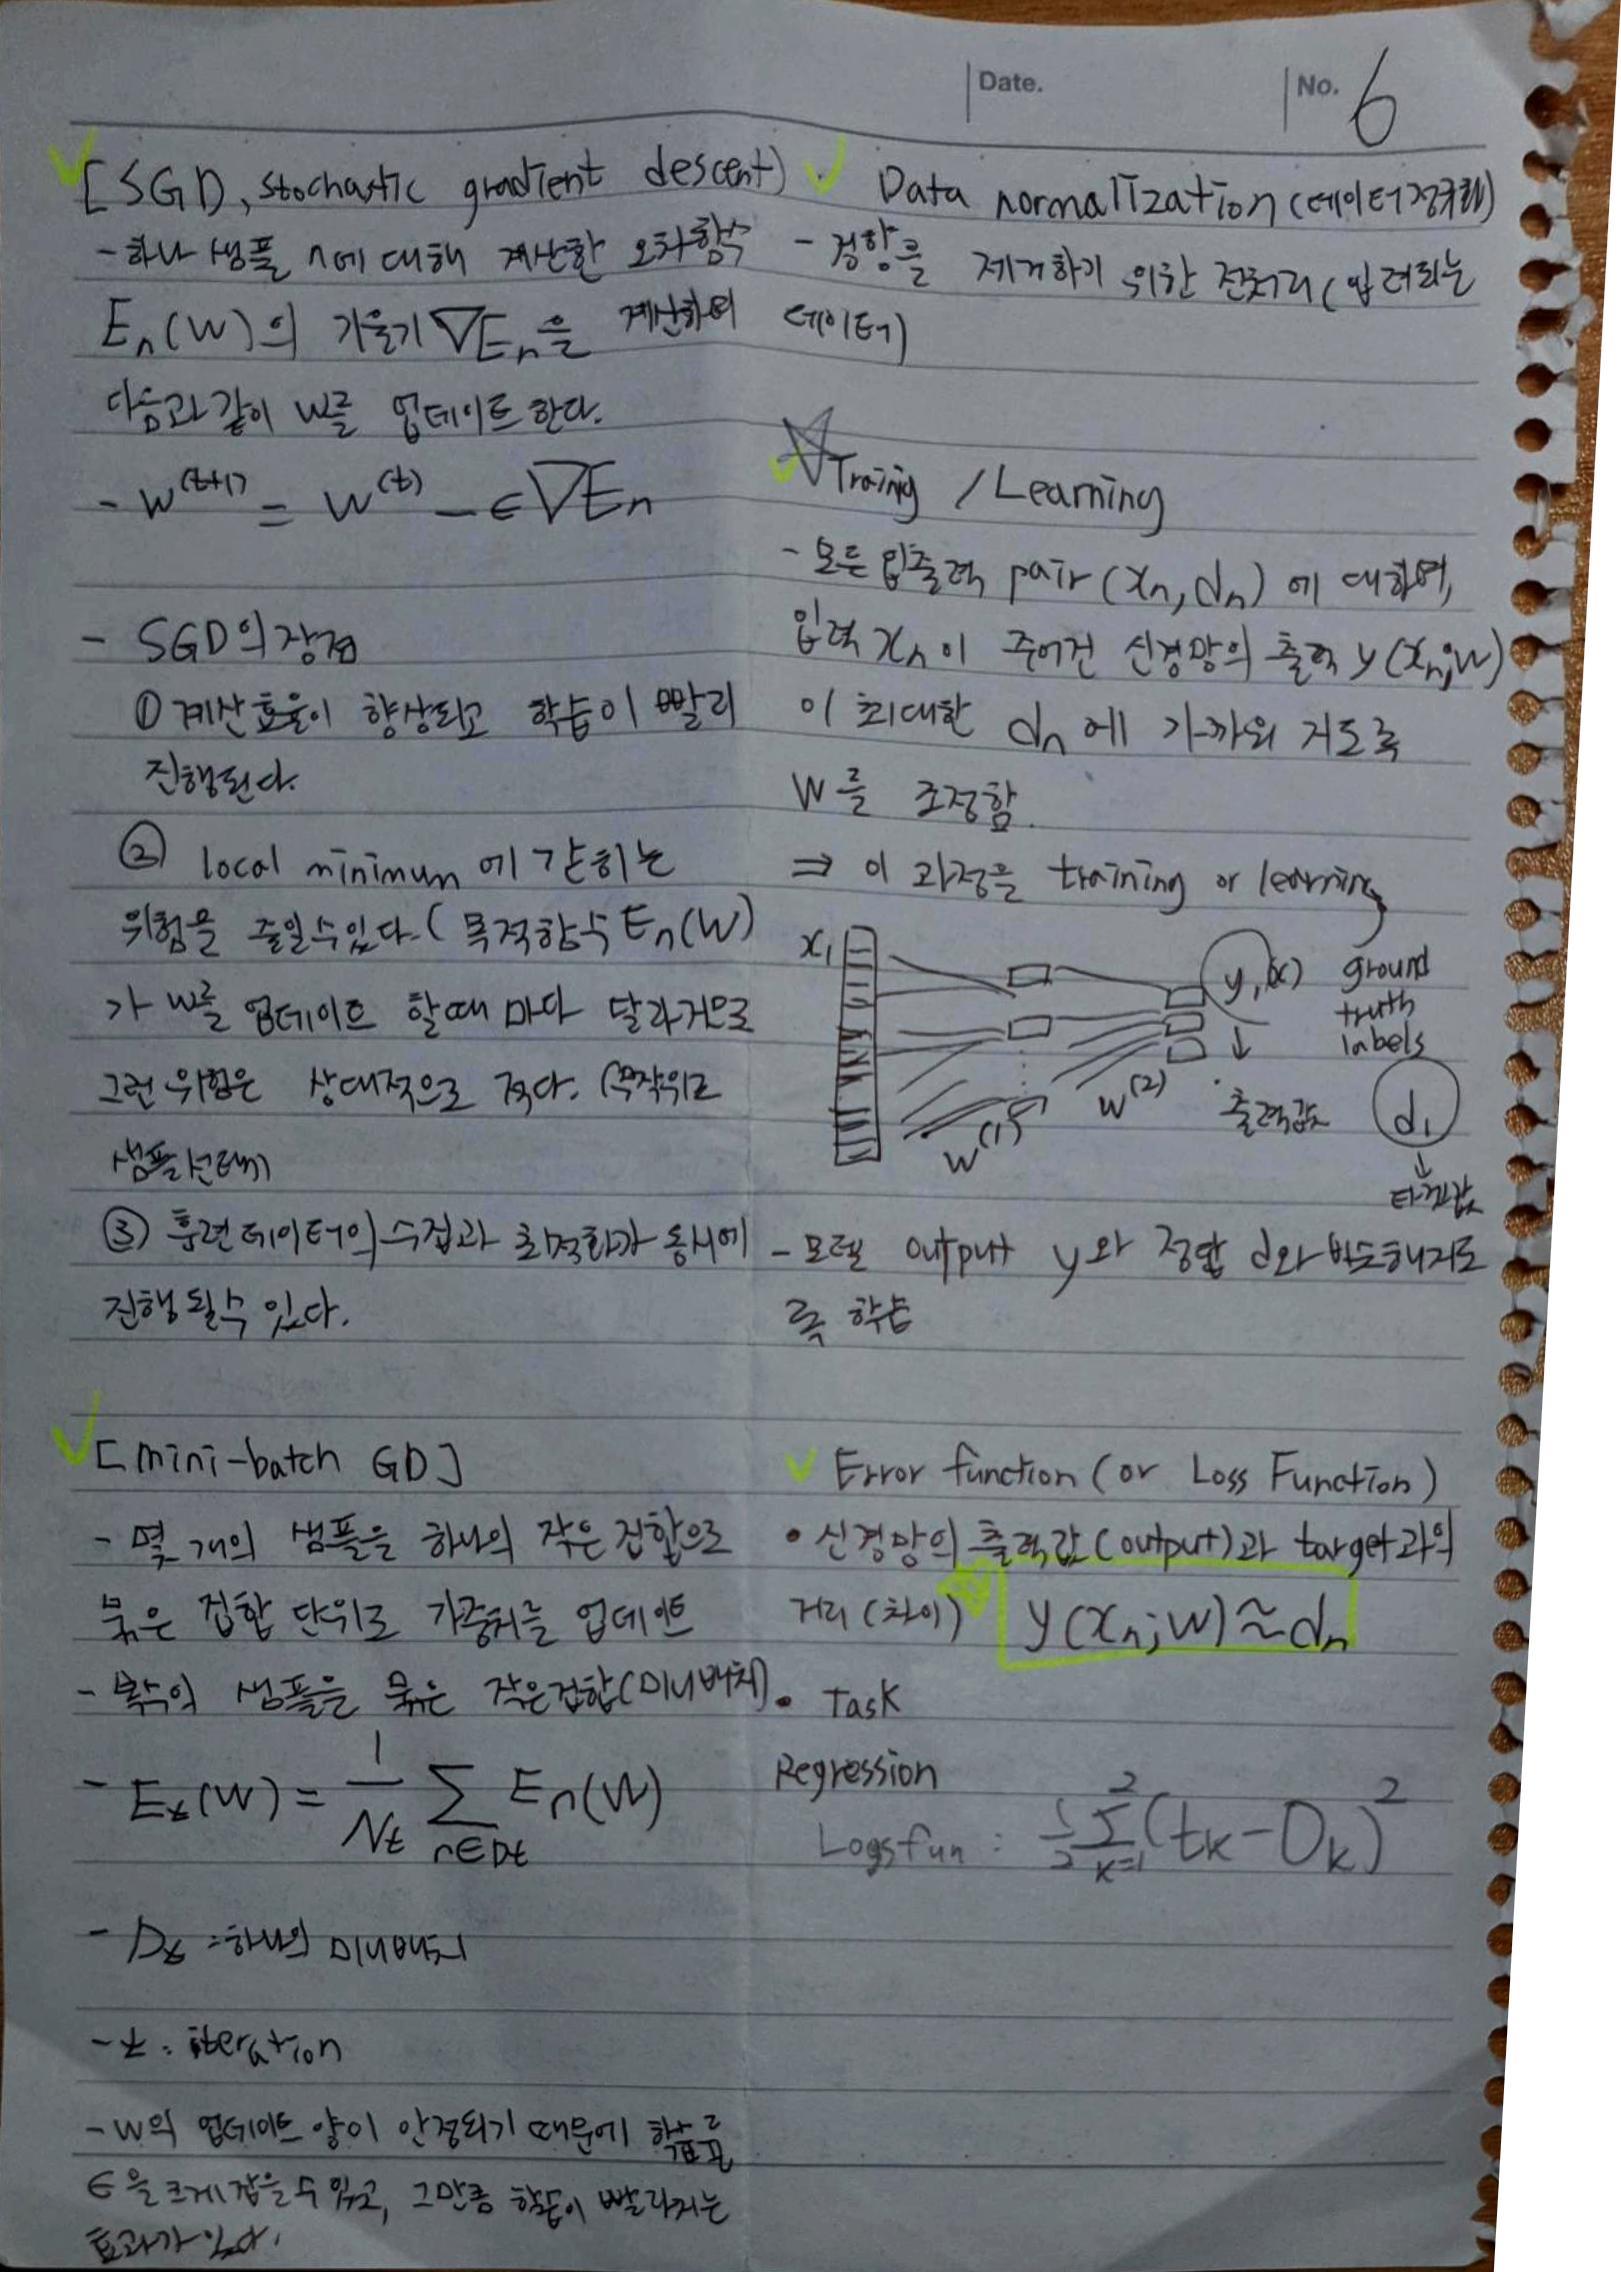 Date.
No. 6
[SGD, stochastic gradient descent)
- 하나 샘플 n에 대해 계산한 오차함수
En(W)의 기울기 ∇En을 계산하여
다음과 같이 W를 업데이트 한다.
- W^(t+1) = W^(t) - ϵ∇En
- SGD의 장점
① 계산효율이 향상되고 학습이 빨리
진행된다.
② local minimum에 갇히는
위험을 줄일수있다. ( 목적함수 En(W)
가 W를 업데이트 할때 마다 달라지므로
그런 위험은 상대적으로 적다. (무작위로
샘플선택)
③ 훈련데이터의 수집과 최적화가 동시에
진행 될수 있다.
[mini-batch GD]
- 몇 개의 샘플을 하나의 작은 집합으로
묶은 집합 단위로 가중치를 업데이트
- 복수의 샘플을 묶은 작은집합(미니배치)
- Et(W) = 1/Nt ∑ n∈Dt En(W)
- Dt : 하나의 미니배치
- t : iteration
- W의 업데이트 양이 안정되기 때문에 학습률
ϵ을 크게 잡을수 있고, 그만큼 학습이 빨라지는
효과가 있다.
Data normalization (데이터 정규화)
- 경향을 제거하기 위한 전처리 (입력되는
데이터)
Trainig / Learning
- 모든 입출력 pair (xn, dn) 에 대하여,
입력 xn이 주어진 신경망의 출력 y(xn;w)
이 최대한 dn에 가까워 지도록
W를 조정함.
⇒ 이 과정을 training or learning
x1
y1(x) ground
truth
labels
↓
출력값
W^(1)
W^(2)
d1
↓
타겟값
- 모델 output y와 정답 d와 비슷해지도
록 학습
Error function (or Loss Function)
• 신경망의 출력값(output)과 target과의
거리 (차이)
y(xn;w)≈dn
• Task
Regression
Logsfun : 1/2 ∑ k=1 2 (tk-Ok)^2